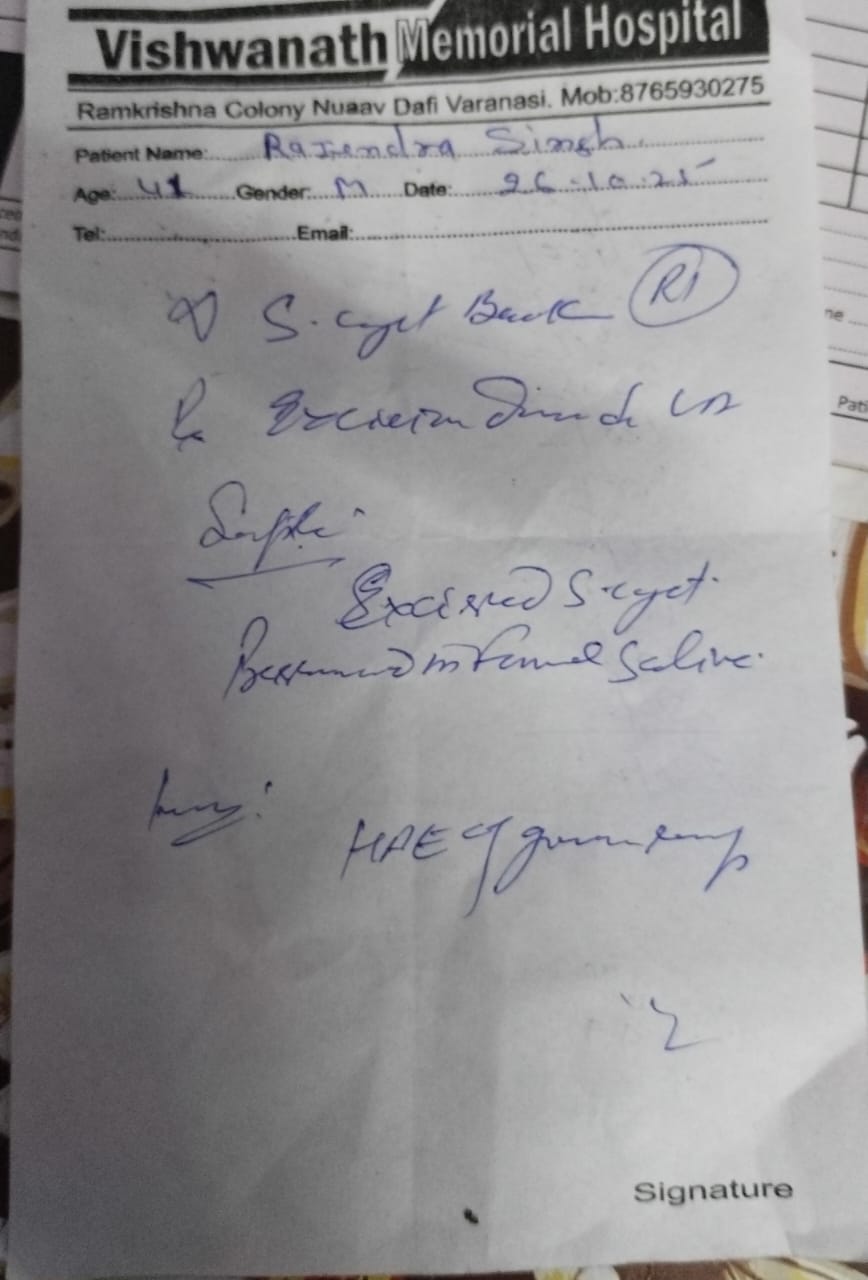 Vishwanath Memorial Hospital
Ramkrishna Colony Nuaav Dafi Varanasi. Mob:8765930275
Patient Name: Rajendra Singh
Age: 41 Gender: M Date: 26.10.25
Tel: Email:
S. cyst Back Rt
Rx Excision Done
Excised S. cyst.
in Formal Saline.
HPE of
Signature